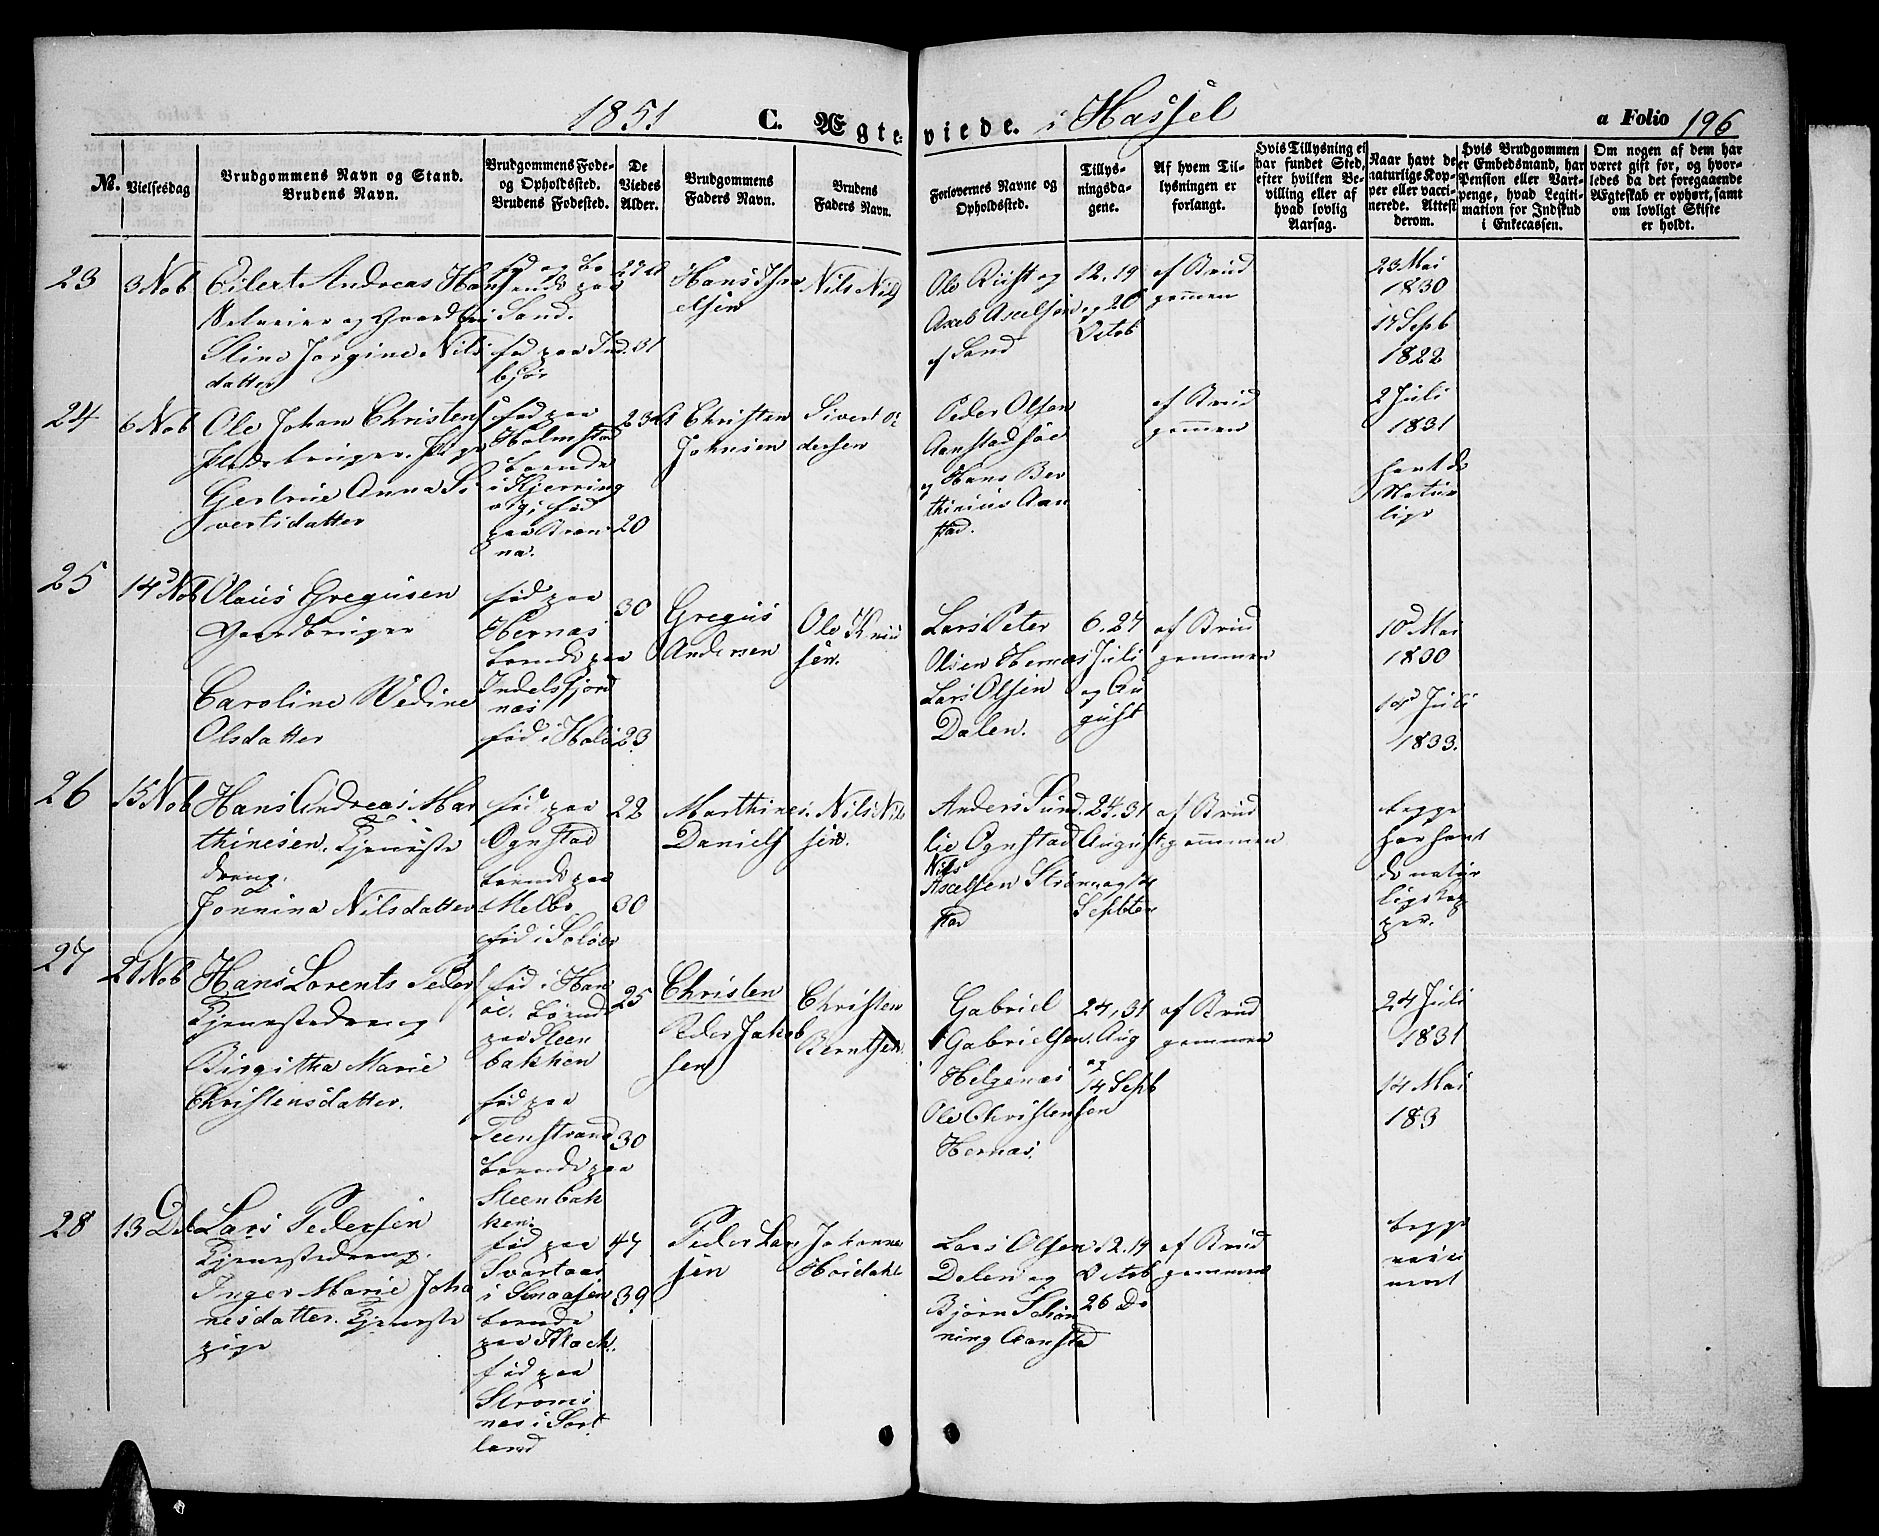 1851 C. Ægteviede. i Hassel a Folio 196
No.
Vielsesdag
Brudgommens Navn og Stand.
Brudens Navn.
Brudgommens Føde-
og Opholdssted.
Brudens Fødested.
De
Viedes
Alder.
Brudgommens
Faders Navn.
Brudens
Faders Navn.
Forlovernes Navne og
Opholdssted.
Tillys-
ningsda-
gene.
Af hvem Til-
lysningen er
forlangt.
Hvis Tillysning ei
har fundet Sted,
efter hvilken Be-
villing eller af
hvad lovlig
Aarsag.
Naar havt de
naturlige Kop-
per eller vacci-
nerede. Attest
derom.
Hvis Brudgommen
er Embedsmand, har
Pension eller Vart-
penge, hvad Legiti-
mation for Indskud
i Enkecassen.
Om nogen af dem har
været gift før, og hvor-
ledes da det foregaaende
Ægteskab er ophørt, samt
om lovligt Skifte
er holdt.
23
3 Nob
Eilert Andreas Hans
Stine Jorgine Nils
datter
fød og bo
ende paa
Sand.
fød paa Ind
bjør
27
31
Hans Isra
elsen
Nils Nils
Ole Riist og
Axel Axelsen
af Sand
12, 19
og 26
Octob
af Brud
gommen
23 Mai
1830
17 Sept
1822
24
6 Nob
Ole Johan Christens
Gertrue Anna Si
vertsdatter
fød paa
Holmstad
boende
i Kjerring
vig, fød
paa Bræn
na.
23
20
Christen
Johnsen
Sivert Pe
dersen
Peder Olsen
Aanstadsøe
og Hans Ber
thinius Aan
stad.
af Brud
gommen
2 Juli
1831
havt de
Natur
lige
25
14d Nob
Olaus Gregusen
Gaardbruger
Caroline Wedine
Olsdatter
fød paa
Hernæs
boende paa
Indelsfjord
næs
fød i Hols
30
23
Gregus
Andersen
Ole Knud
sen.
Lars Peter
Olsen Hernæs
Lars Olsen
Dalen.
6. 27
Juli
og Au
gust
af Brud
gommen
10d Mai
1830
10d Juli
1833.
26
15 Nob
Hans Andreas Mar
thinesen. Tjeneste
dreng.
Jonnina Nilsdatter
fød paa
Ognstad
boende paa
Melbo
fød i Soløer
22
30
Marthines
Daniels
Nils Nil
sen.
Anders Sund
lie Ognstad
Nils
Axelsen Strøm
stad
24, 31
August
og 14
Septbr
af Brud
gommen
begge
har havt
de natur
lige Kop
per.
27
21 Nob
Hans Lorents Peder
Tjenestedreng
Birgitha Marie
Christensdatter.
fød i Han
øe. boende
paa Steen
bakken
fød paa
Teenstrand
boende paa
Steenbak
ken.
25
30
Christen
Peder Jakob
sen
Christen
Berntsen
Gabriel
Gabrielsen
Helgenæs
Ole Christensen
Hernæs
24, 31
Aug
og
14 Sept
af Brud
gommen
24 Juli
1831
14 Mai
183
28
13 Dec
Lars Pedersen
Tjenestedreng.
Inger Marie Joha
nesdatter. Tjeneste
pige
fød paa
Svartaas
i Snaasen
boende
paa
fød paa
Strøms
næs i Sort
land
47
39
Peder Lar
sen
Johannes
Hordahl
Lars Olsen
Dalen og
Bjørn Schøn
ning Aansta
12. 19
Octob
26 Do
af Brud
gommen
begge
vacci
neret